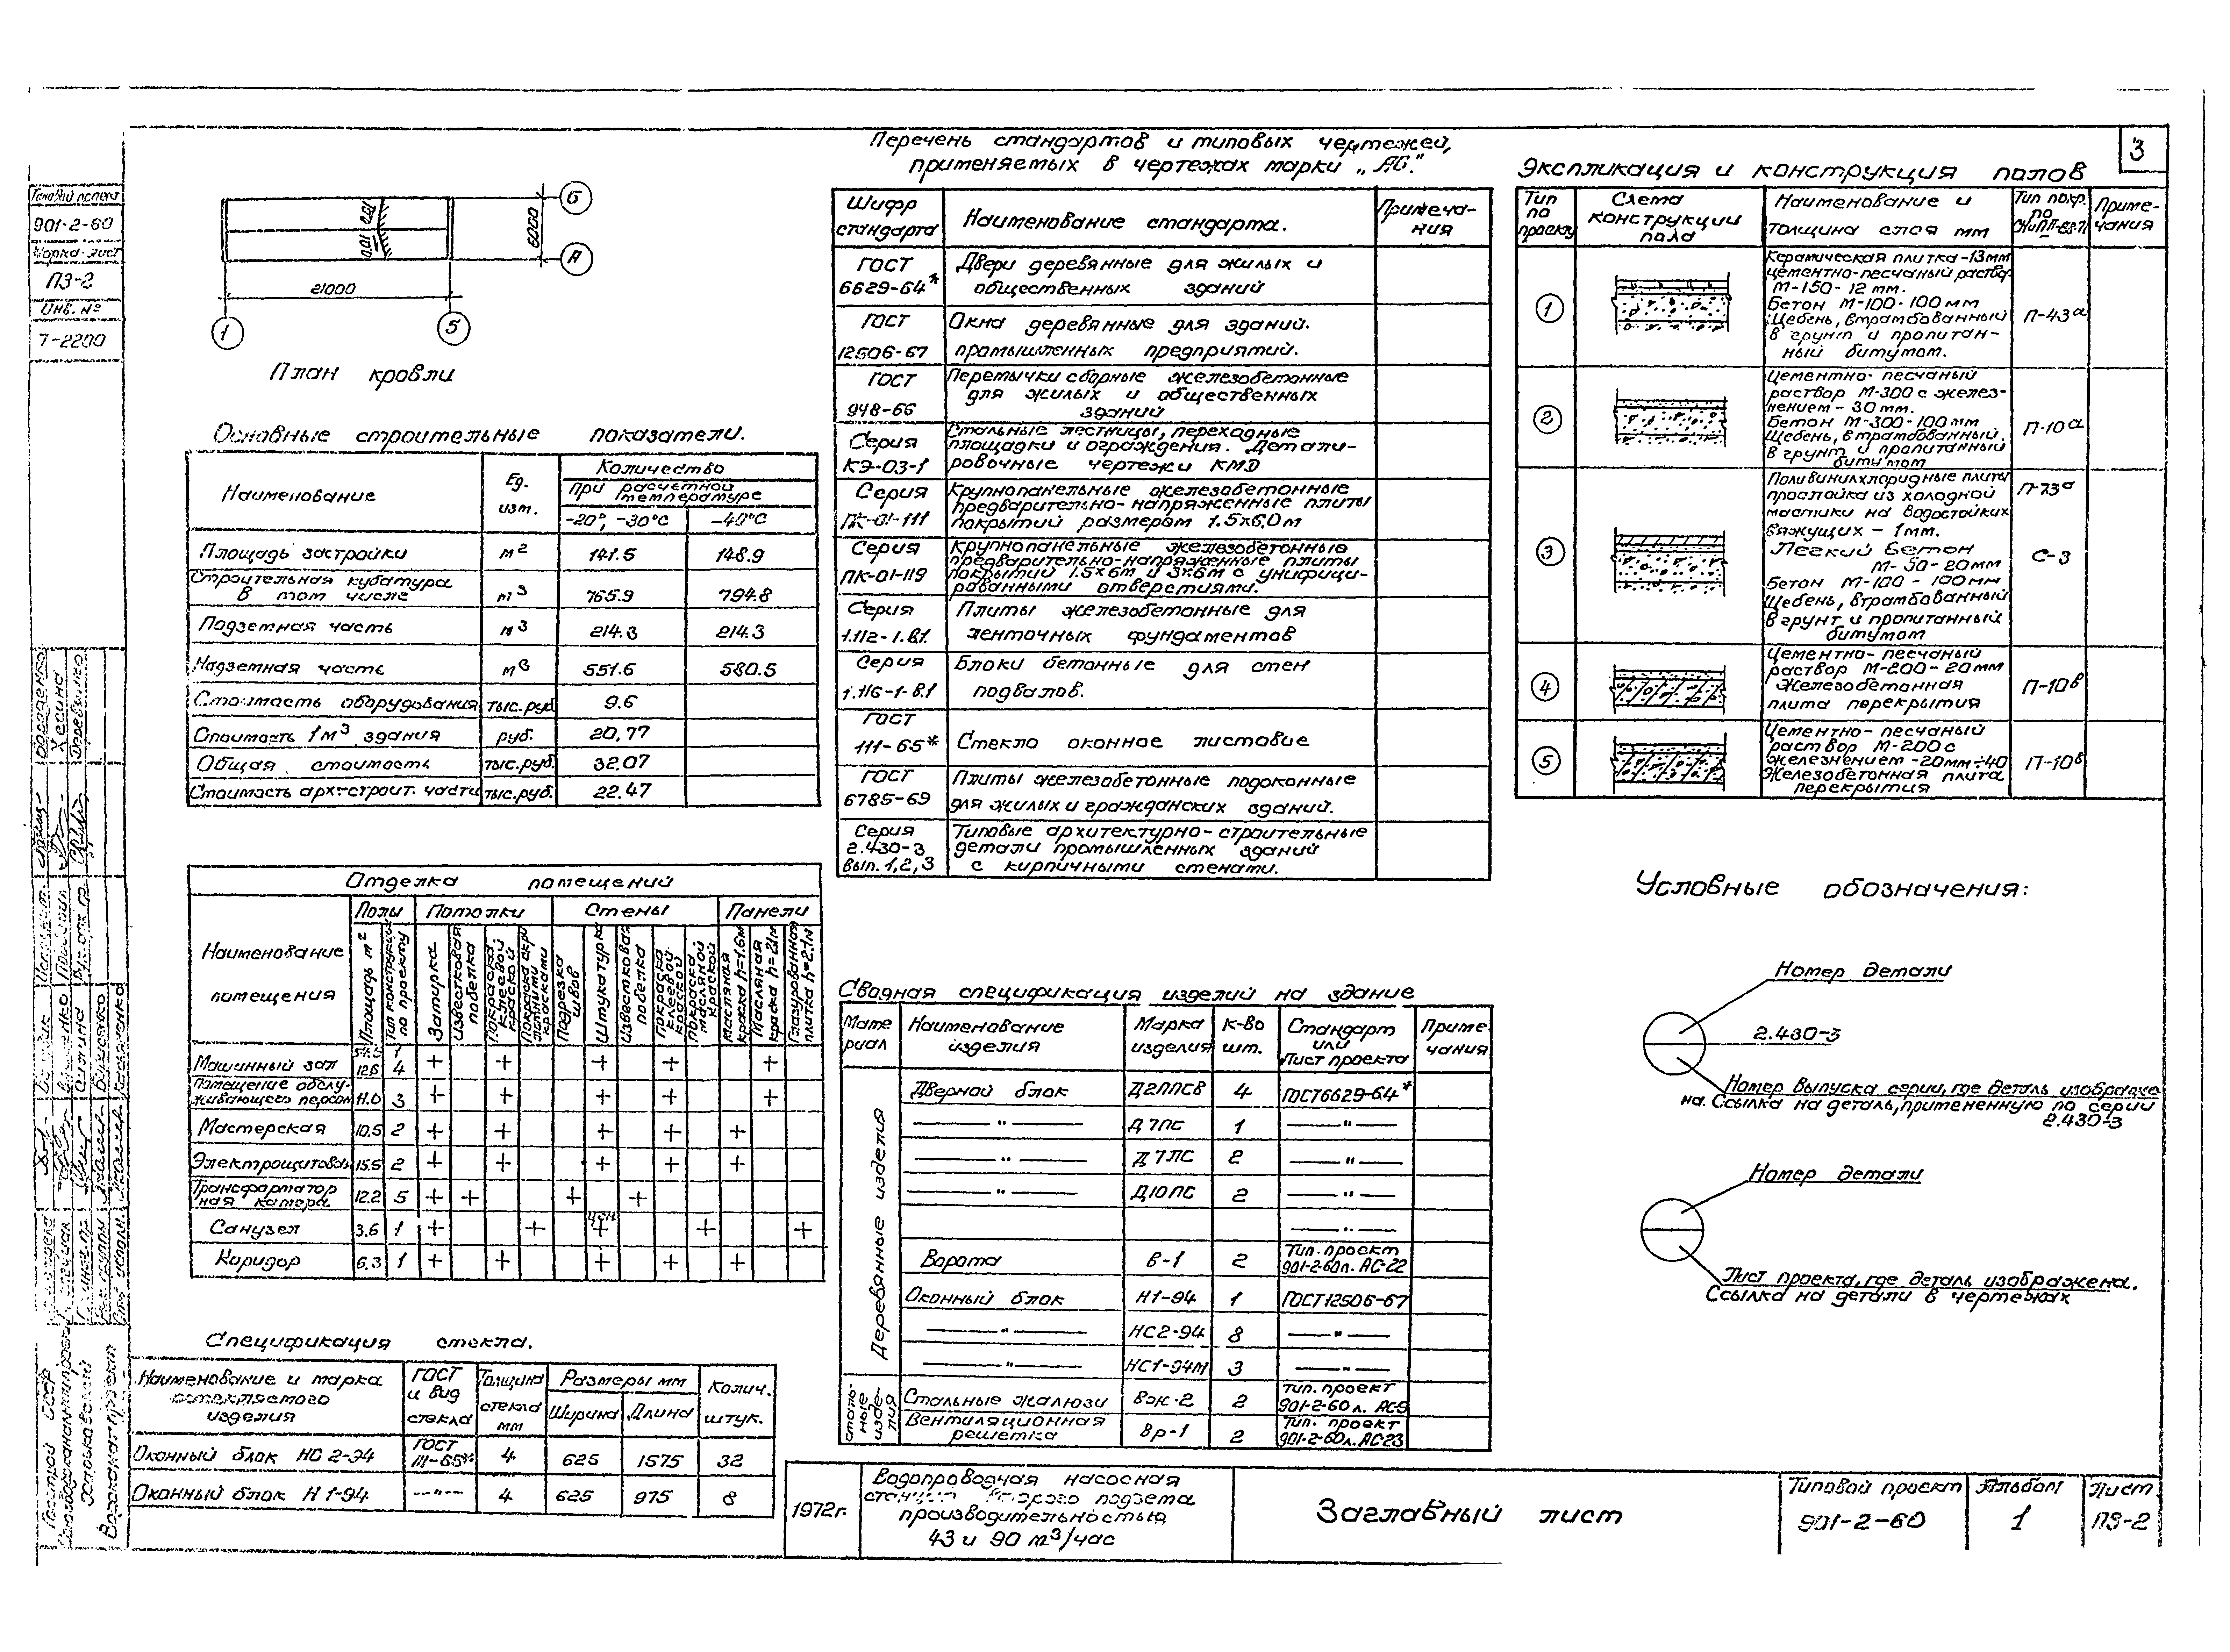 3
Типовой проект
901-2-60
Марка-лист
ПЗ-2
Инв. №
7-2200
0.01 0.01
6000
Б
А
21000
1
5
План кровли
Основные строительные показатели.
Наименование
Ед. изм.
Количество
при расчетной температуре
-20°, -30°С
-40°С
Площадь застройки м² 141.5 148.9
Строительная кубатура в том числе м³ 765.9 794.8
Подземная часть м³ 214.3 214.3
Надземная часть м³ 551.6 580.5
Стоимость оборудования тыс.руб 9.6
Стоимость 1м³ здания руб. 20,77
Общая стоимость тыс.руб. 32.07
Стоимость арх-строит. части тыс.руб. 22.47
Отделка помещений
Наименование помещения
Полы
Потолки
Стены
Панели
Площадь м²
Тип конструкции по проекту
Затирка
Известковая побелка
Покраска клеевой краской
Подрезка швов
Штукатурка
Известковая побелка
Покраска клеевой краской
Покраска масляной краской
Масляная краска h=1.6м
Масляная краска h=2.1м
Глазурованная плитка h=2.1м
Машинный зал 4 + + + + +
Помещение обслуживающего персон 11.0 3 + + + + +
Мастерская 10.5 2 + + + + +
Электрощитовая 15.5 2 + + + + +
Трансформаторная камера 12.2 5 + + + +
Санузел 3.6 1 + + + + +
Коридор 6.3 1 + + + + +
Спецификация стекла.
Наименование и марка остекляемого изделия
ГОСТ и вид стекла
Толщина стекла мм
Размеры мм
Ширина
Длина
Колич. штук.
Оконный блок НС 2-94 ГОСТ 111-65* 4 625 1575 32
Оконный блок Н 1-94 —"— 4 625 975 8
Перечень стандартов и типовых чертежей,
применяемых в чертежах марки „АС".
Шифр стандарта
Наименование стандарта.
Примечания
ГОСТ
6629-64*
Двери деревянные для жилых и
общественных зданий
ГОСТ
12506-67
Окна деревянные для зданий.
промышленных предприятий.
ГОСТ
948-66
Перемычки сборные железобетонные
для жилых и общественных
зданий
Серия
КЭ-03-1
Стальные лестницы, переходные
площадки и ограждения. Детали-
ровочные чертежи КМД
Серия
ПК-01-111
Крупнопанельные железобетонные
предварительно-напряженные плиты
покрытий размером 1.5х6.0м
Серия
ПК-01-119
Крупнопанельные железобетонные
предварительно-напряженные плиты
покрытий 1.5×6м и 3×6м с унифици-
рованными отверстиями.
Серия
1.112-1.в.1
Плиты железобетонные для
ленточных фундаментов
Серия
1.116-1-в.1
Блоки бетонные для стен
подвалов.
ГОСТ
111-65*
Стекло оконное листовое
ГОСТ
6785-69
Плиты железобетонные подоконные
для жилых и гражданских зданий.
Серия
2.430-3
Вып. 1,2,3
Типовые архитектурно-строительные
детали промышленных зданий
с кирпичными стенами.
Сводная спецификация изделий на здание
Материал
Наименование изделия
Марка изделия
к-во шт.
Стандарт или Лист проекта
Примечания
Деревянные изделия
Дверной блок Д2ППСВ 4 ГОСТ6629-64*
—"— Д7ПС 1 —"—
—"— Д7ЛС 2 —"—
—"— Д10ПС 2 —"—
—"—
Ворота в-1 2 Тип. проект 901-2-60л. АС-22
Оконный блок Н1-94 1 ГОСТ12506-67
—"— НС2-94 8 —"—
—"— НС1-94М 3 —"—
Стальные изделия
Стальные жалюзи Вж-2 2 тип. проект 901-2-60 л. АС-9
Вентиляционная решетка Вр-1 2 Тип. проект 901-2-60л. АС-23
Экспликация и конструкция полов
Тип по проекту
Схема конструкции пола
Наименование и толщина слоя мм
Тип покр. по
Примечания
1
Керамическая плитка-13мм
цементно-песчаный раствор
М-150-12 мм.
Бетон М-100-100мм
Щебень, втрамбованный
в грунт и пропитан-
ный битумом.
П-43а
2
Цементно-песчаный
раствор М-300 с желез-
нением-30мм.
Бетон М-300-100мм
Щебень, втрамбованный
в грунт и пропитанный
битумом
П-10а
3
Поливинилхлоридные плиты
прослойка из холодной
мастики на водостойких
вяжущих - 1мм.
Легкий бетон
М-50-20мм
Бетон М-100-100мм
Щебень, втрамбованный
в грунт и пропитанный
битумом
П-73а
С-3
4
Цементно-песчаный
раствор М-200-20мм
Железобетонная
плита перекрытия
П-10в
5
Цементно-песчаный
раствор М-200 с
железнением-20мм÷40
Железобетонная плита
перекрытия
П-10в
Условные обозначения:
Номер детали
2.430-3
Номер выпуска серии, где деталь изображе
на. Ссылка на деталь, примененную по серии
2.430-3
Номер детали
Лист проекта, где деталь изображена.
Ссылка на детали в чертежах
1972г.
Водопроводная насосная
станция второго подъема
производительностью
43 и 90 м³/час
Заглавный лист
Типовой проект
901-2-60
Альбом
1
Лист
ПЗ-2
Госстрой СССР